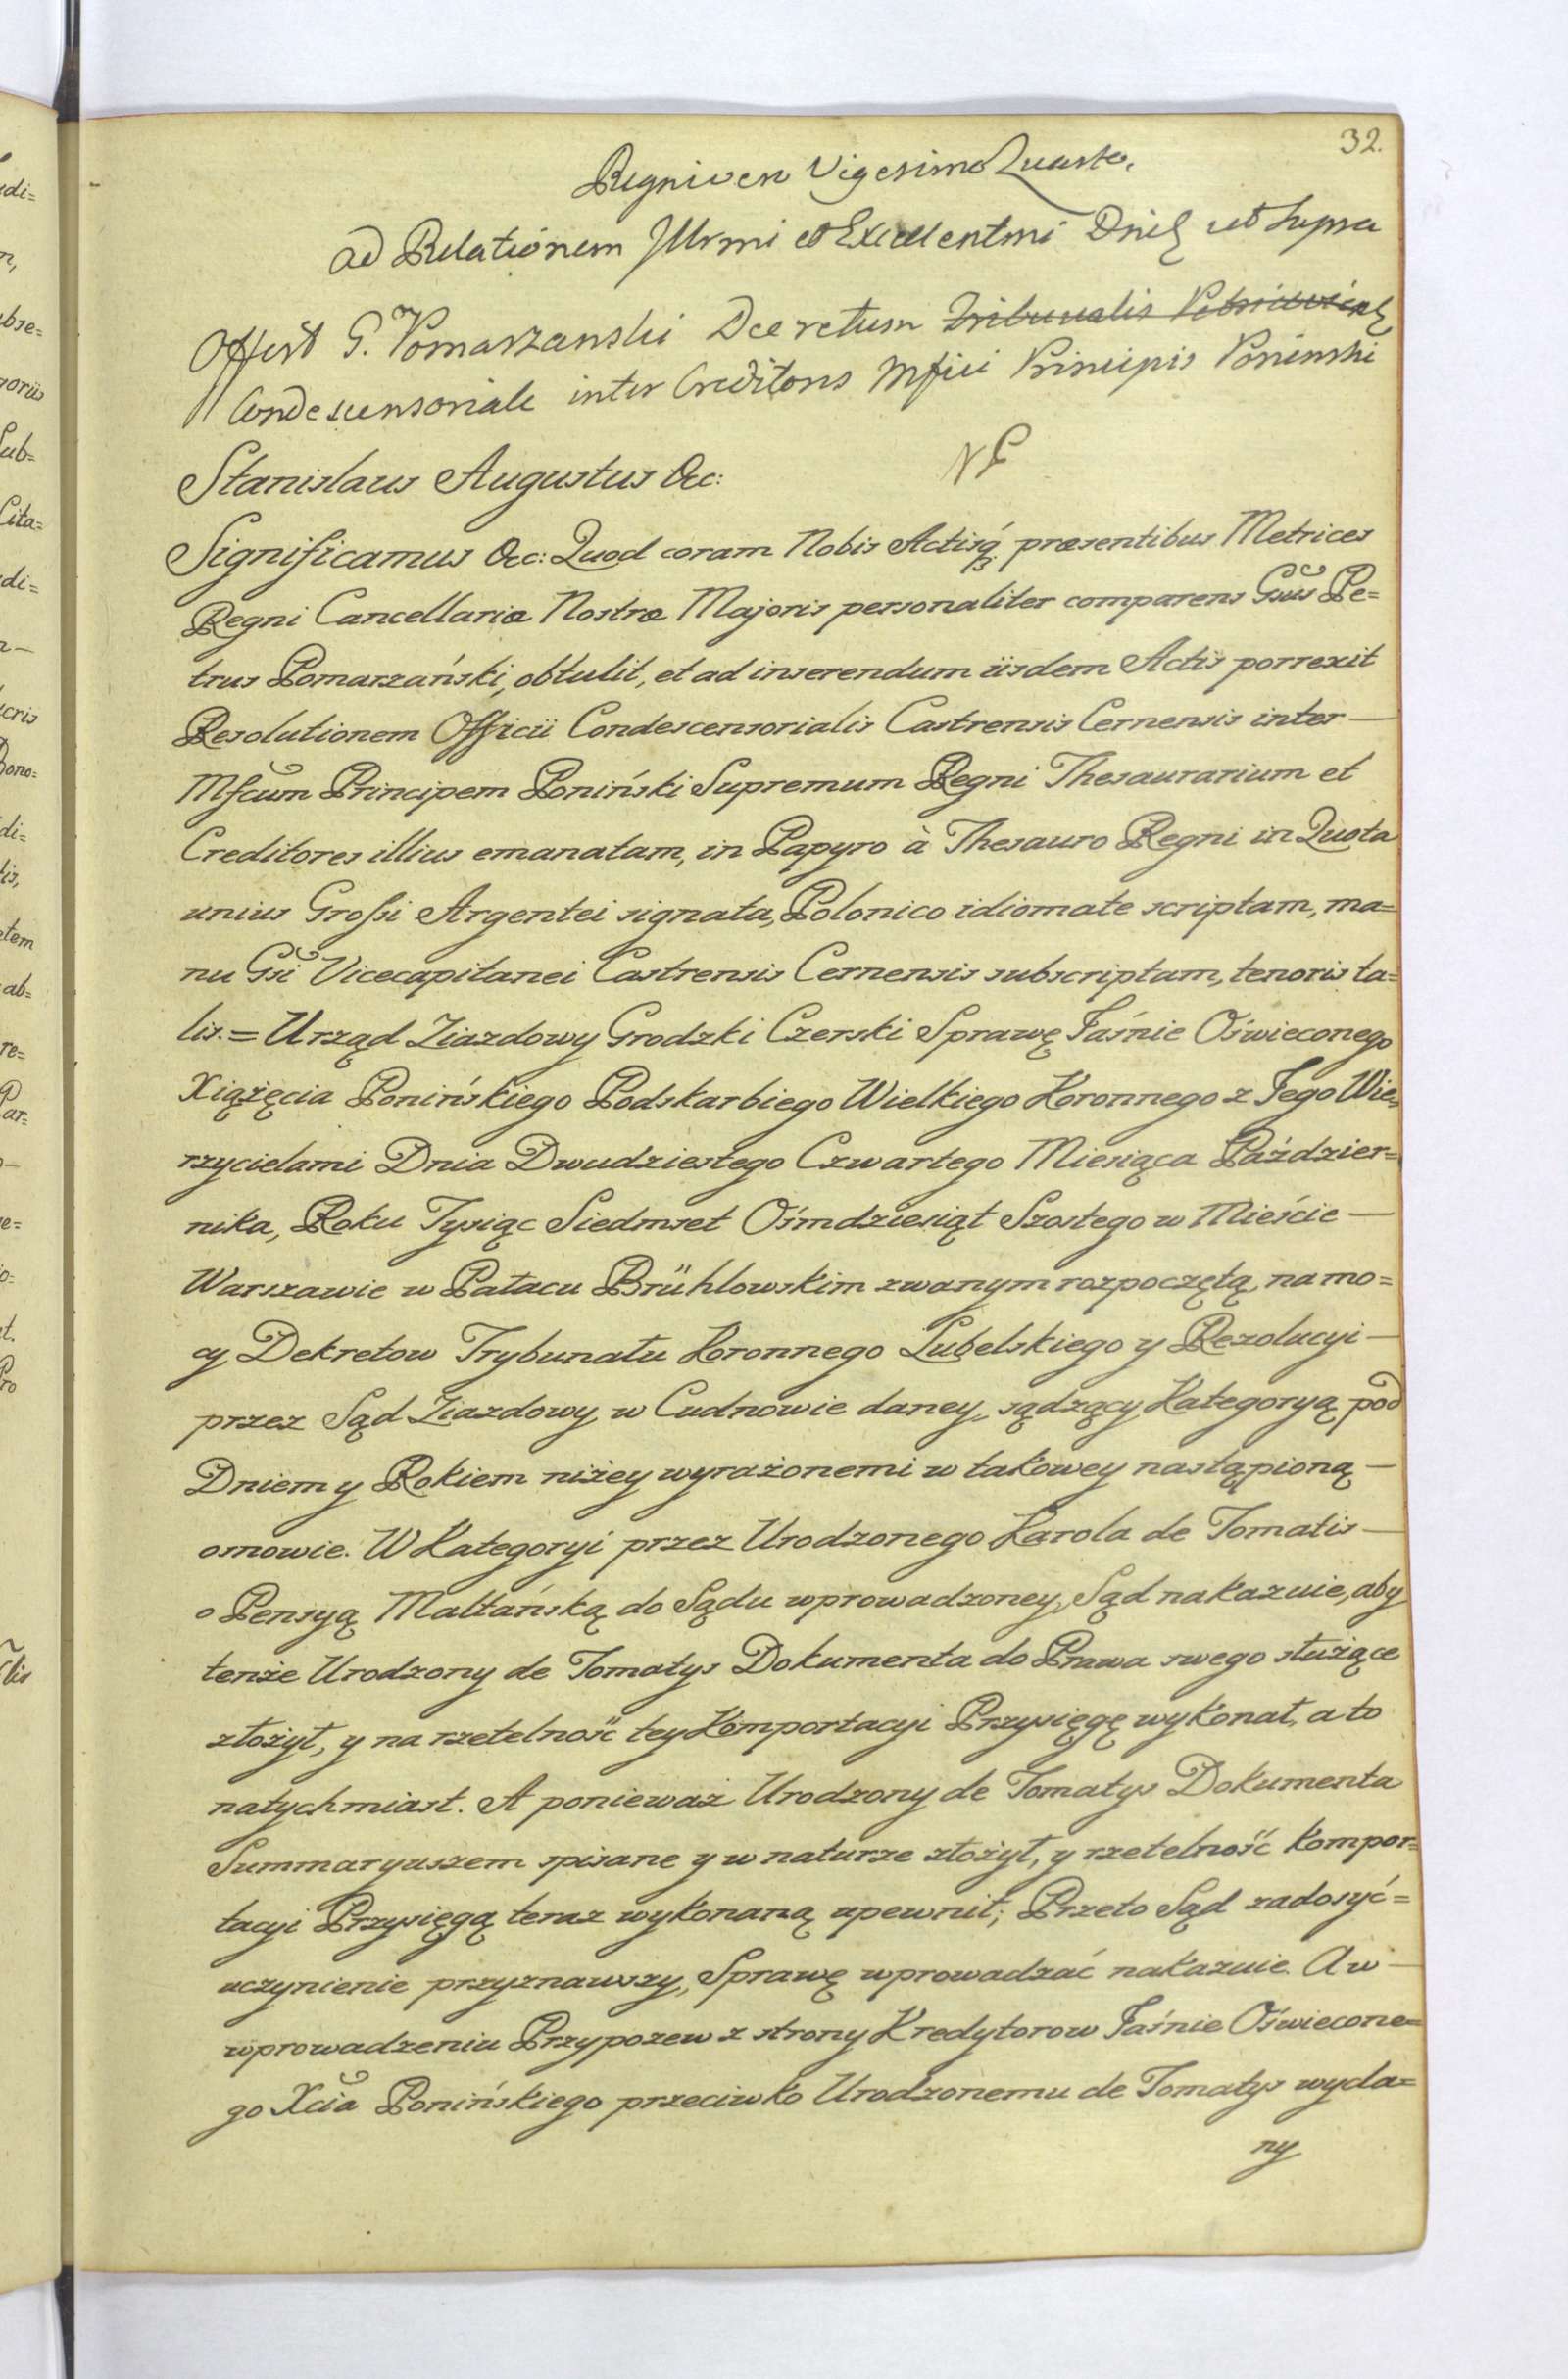 32.
Regni vero Vigesimo Quarto.
ad Relationem Illrmi et Excellentmi Dni ut supra
Offert G. Pomarzanski Decretum Tribunalis
Condescensoriale inter Creditores Mfici Principis Poninski
Stanislaus Augustus &c:
Significamus &c: Quod coram Nobis Actisq præsentibus Metrices
Regni Cancellariæ Nostræ Majoris personaliter comparens Gsus Pe=
trus Pomarzański, obtulit, et ad inserendum iisdem Actis porrexit
Resolutionem Officii Condescensorialis Castrensis Cernensis inter —
Mfcum Principem Poniński Supremum Regni Thesaurarium et
Creditores illius emanatam, in Papyro à Thesauro Regni in Quota
unius Grossi Argentei signata, Polonico idiomate scriptam, ma=
nu Gsi Vicecapitanei Castrensis Cernensis subscriptam, tenoris ta=
lis. = Urząd Ziazdowy Grodzki Czerski Sprawę Jaśnie Oświeconego
Xiążęcia Ponińskiego Podskarbiego Wielkiego Koronnego z Jego Wie=
rzycielami Dnia Dwudziestego Czwartego Miesiąca Październ=
nika, Roku Tysiąc Siedmset Ośmdziesiąt Szostego w Mieście —
Warszawie w Pałacu Brühlowskim zwanym rozpoczętą, na mo=
cy Dekretow Trybunału Koronnego Lubelskiego y Rezolucyi —
przez Sąd Ziazdowy w Cudnowie daney, sądzący Kategoryą pod
Dniem y Rokiem niżey wyrażonemi w takowey nastąpioną —
osnowie. W Kategoryi przez Urodzonego Karola de Tomatis —
o Pensyą Maltańską do Sądu wprowadzoney, Sąd nakazuie, aby
tenże Urodzony de Tomatys Dokumenta do Prawa swego służące
złożył, y na rzetelność tey Komportacyi Przysięgę wykonał, a to
natychmiast. A ponieważ Urodzony de Tomatys Dokumenta
Summaryuszem spisane y w naturze złożył, y rzetelność Kompor=
tacyi Przysięgą teraz wykonaną upewnił; Przeto Sąd zadosyć=
uczynienie przyznawszy, Sprawę wprowadzać nakazuie. A w —
wprowadzeniu Przypozew z strony Kredytorow Jaśnie Oświecone=
go Xcia Ponińskiego przeciwko Urodzonemu de Tomatys wyda=
ny